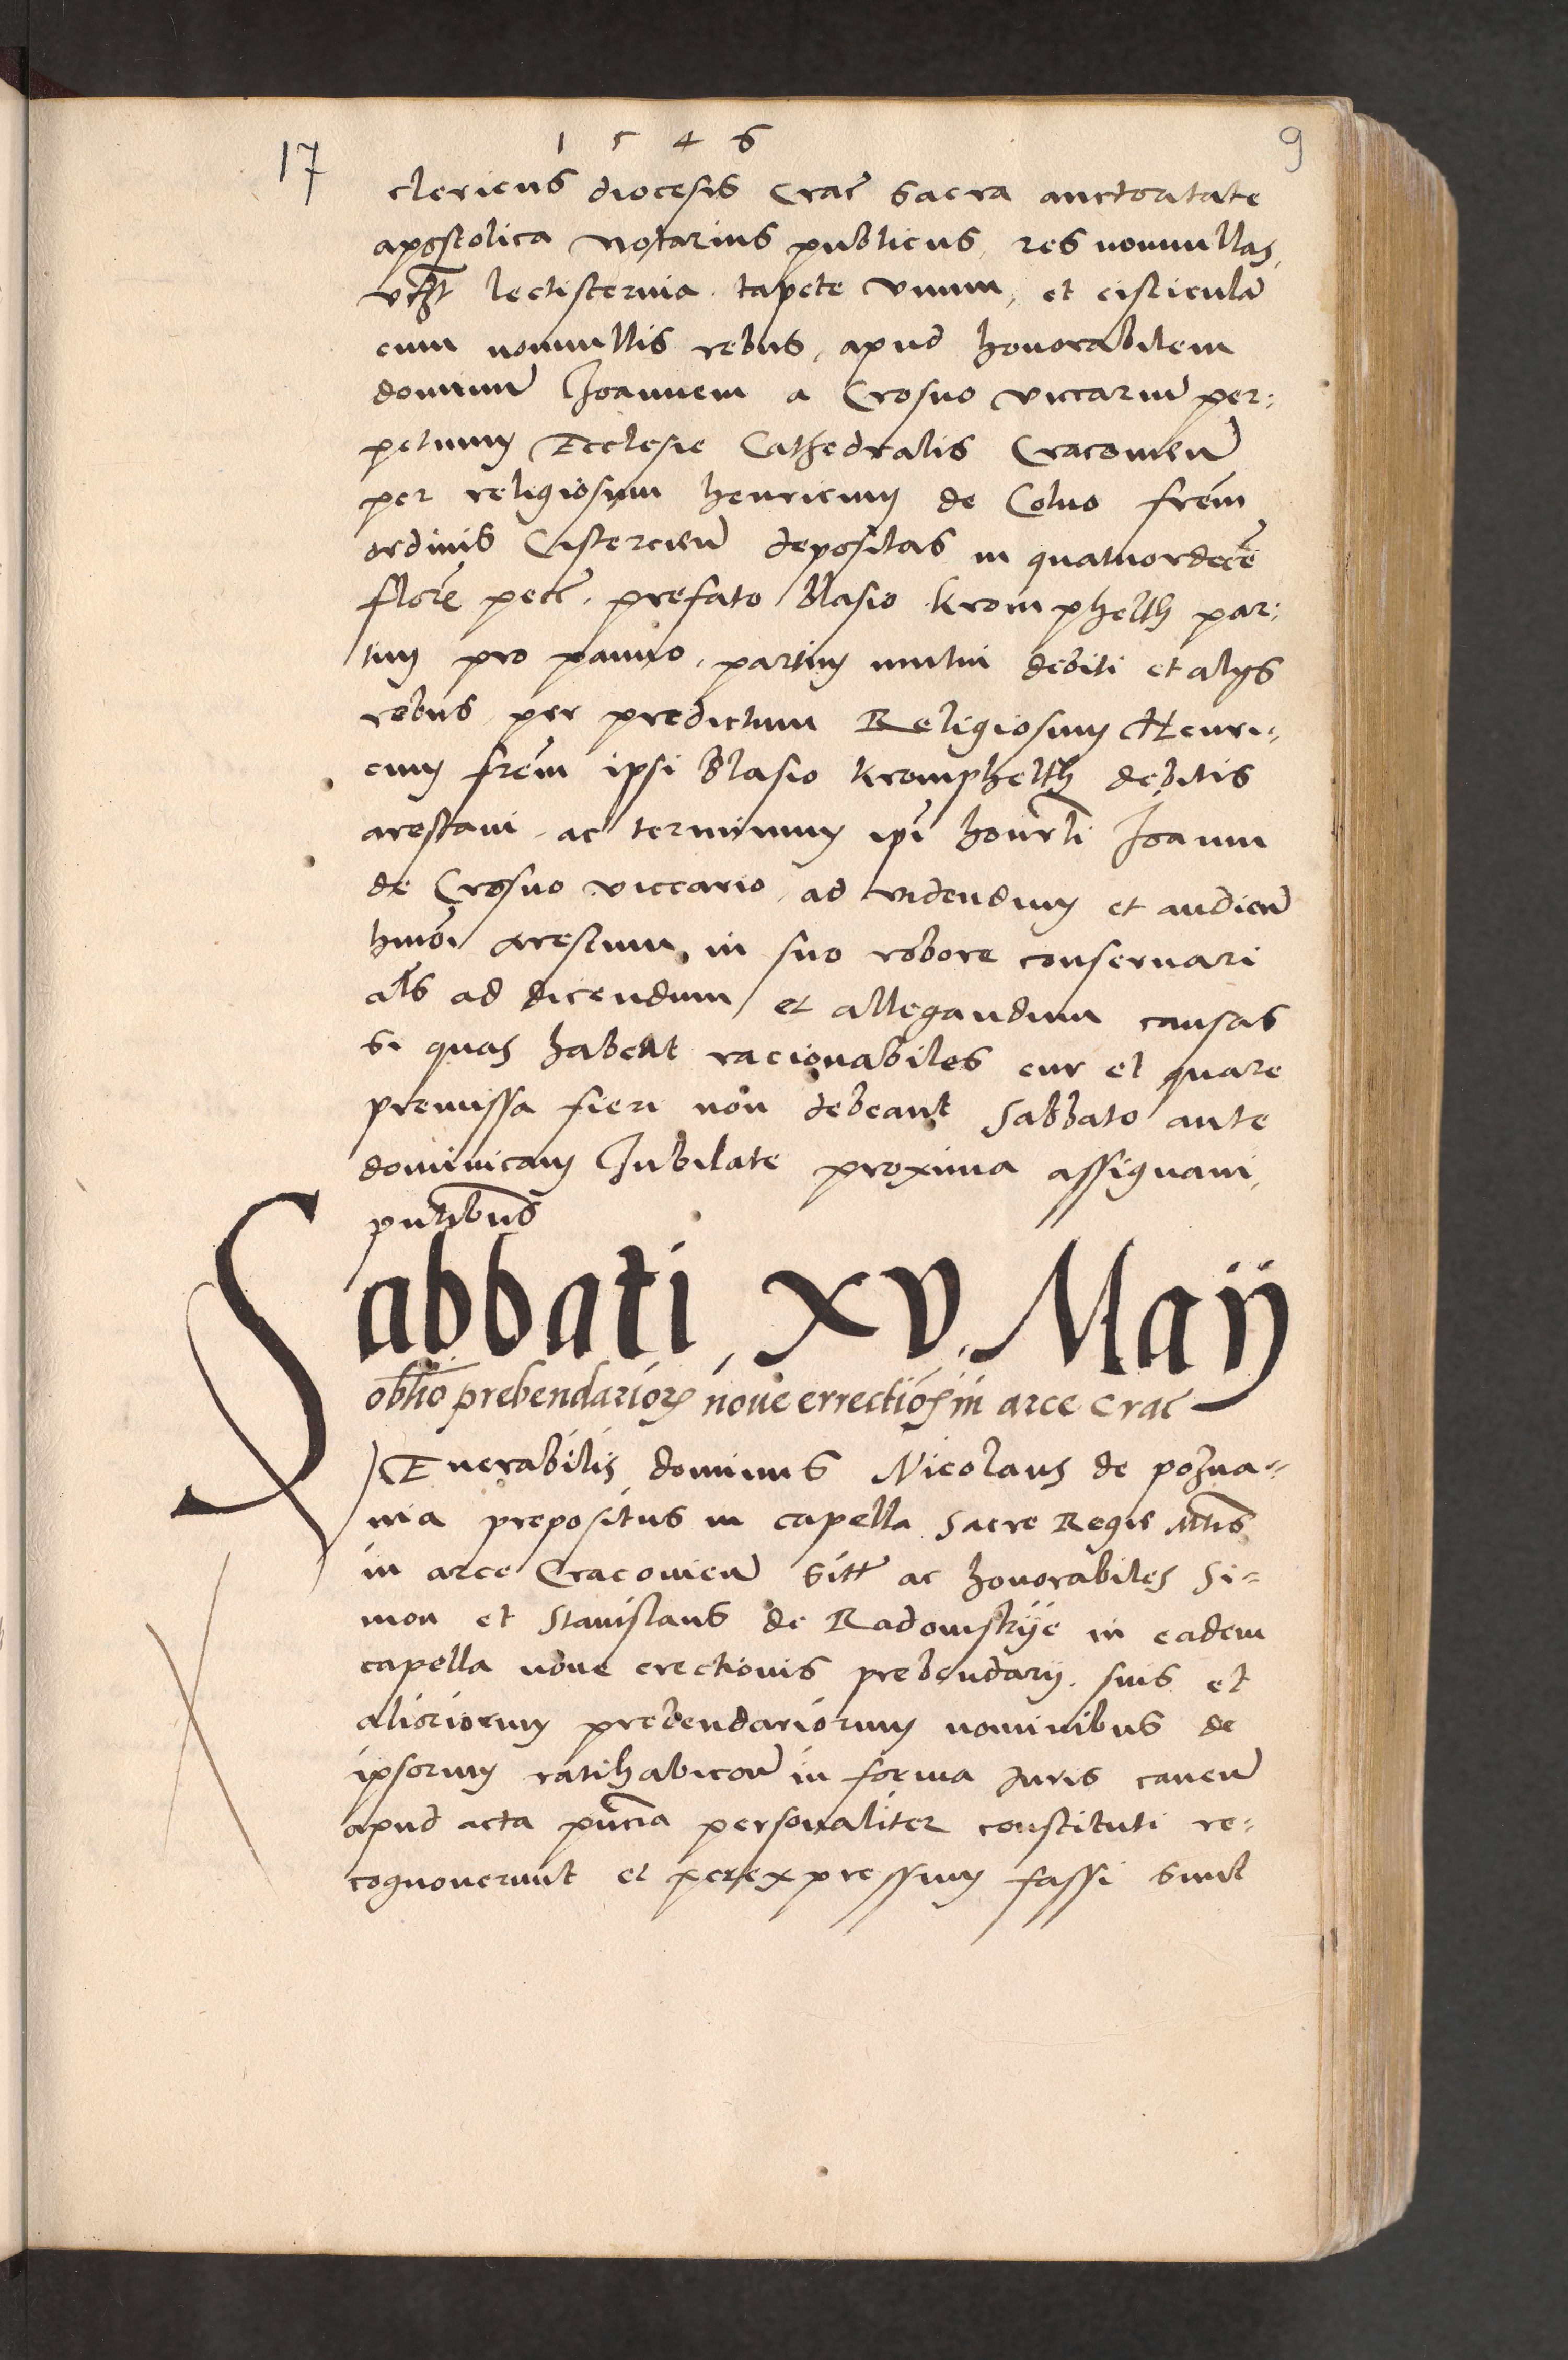 1546
17
9
clericus diocesis Crac̄ sacra auctoritate
apostolica Notarius publicus, res nonnullas,
vidz̄t lectisternia, tapete vnum, et cisticulā
cum nonnullis rebus, apud honorabilem
dominū Joannem a Crosno viccariū per:
petuum Ecclesie Cathedralis Cracovien̄
per religiosum henricum de Colno frēm
ordinis Cistercien̄ depositas in quatuordecē
florē pecē, prefato Blasio Kromphelth par:
tim pro panno, partim mutui debiti et alijs
rebus per predictum Religiosum Henri=
cum frēm ipsi Blasio Kromphelth debitis
arestavi, ac terminum ipī honrli Joanni
de Crosno viccario, ad videndum et audien̄
hmōi arestum, in suo robore conservari
als̄ ad dicendum et allegandum causas
si quas habeat racionabiles cur et quare
premissa fieri non debeant Sabbato ante
dominicam Jubilate proxima assignavi,
pn̄tibus
Sabbati, XV, Maij
oblīo prebendariorꝝ nove errectiōis in arce Crac̄
VEnerabilis dominus Nicolaus de pozna=
nia prepositus in capella Sacre Regie Mtīs
in arce Cracovien̄ sitt̄ ac honorabiles Si=
mon et Stanislaus de Radomskije in eadem
capella nove erectionis prebendarij, suis et
aliorum prebendariorum nominibus de
ipsorum ratihabicōn̄ in forma Juris caven̄
apud acta pn̄cia personaliter constituti re=
cognoverunt et per expressum fassi sunt